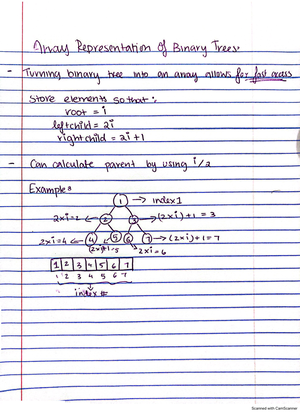 Array Representation Of Binary Trees
- Turning binary tree into an array allows for fast access
Store elements so that :
root = i
left child = 2i
right child = 2i + 1
- Can calculate parent by using i/2
Example:
1 → index 1
2xi=2 ← 2 3 → (2xi)+1 = 3
2xi=4 ← 4 5 6 7 → (2xi)+1=7
(2xi)+1=5 2xi=6
1 2 3 4 5 6 7
1 2 3 4 5 6 7
index
Scanned with CamScanner